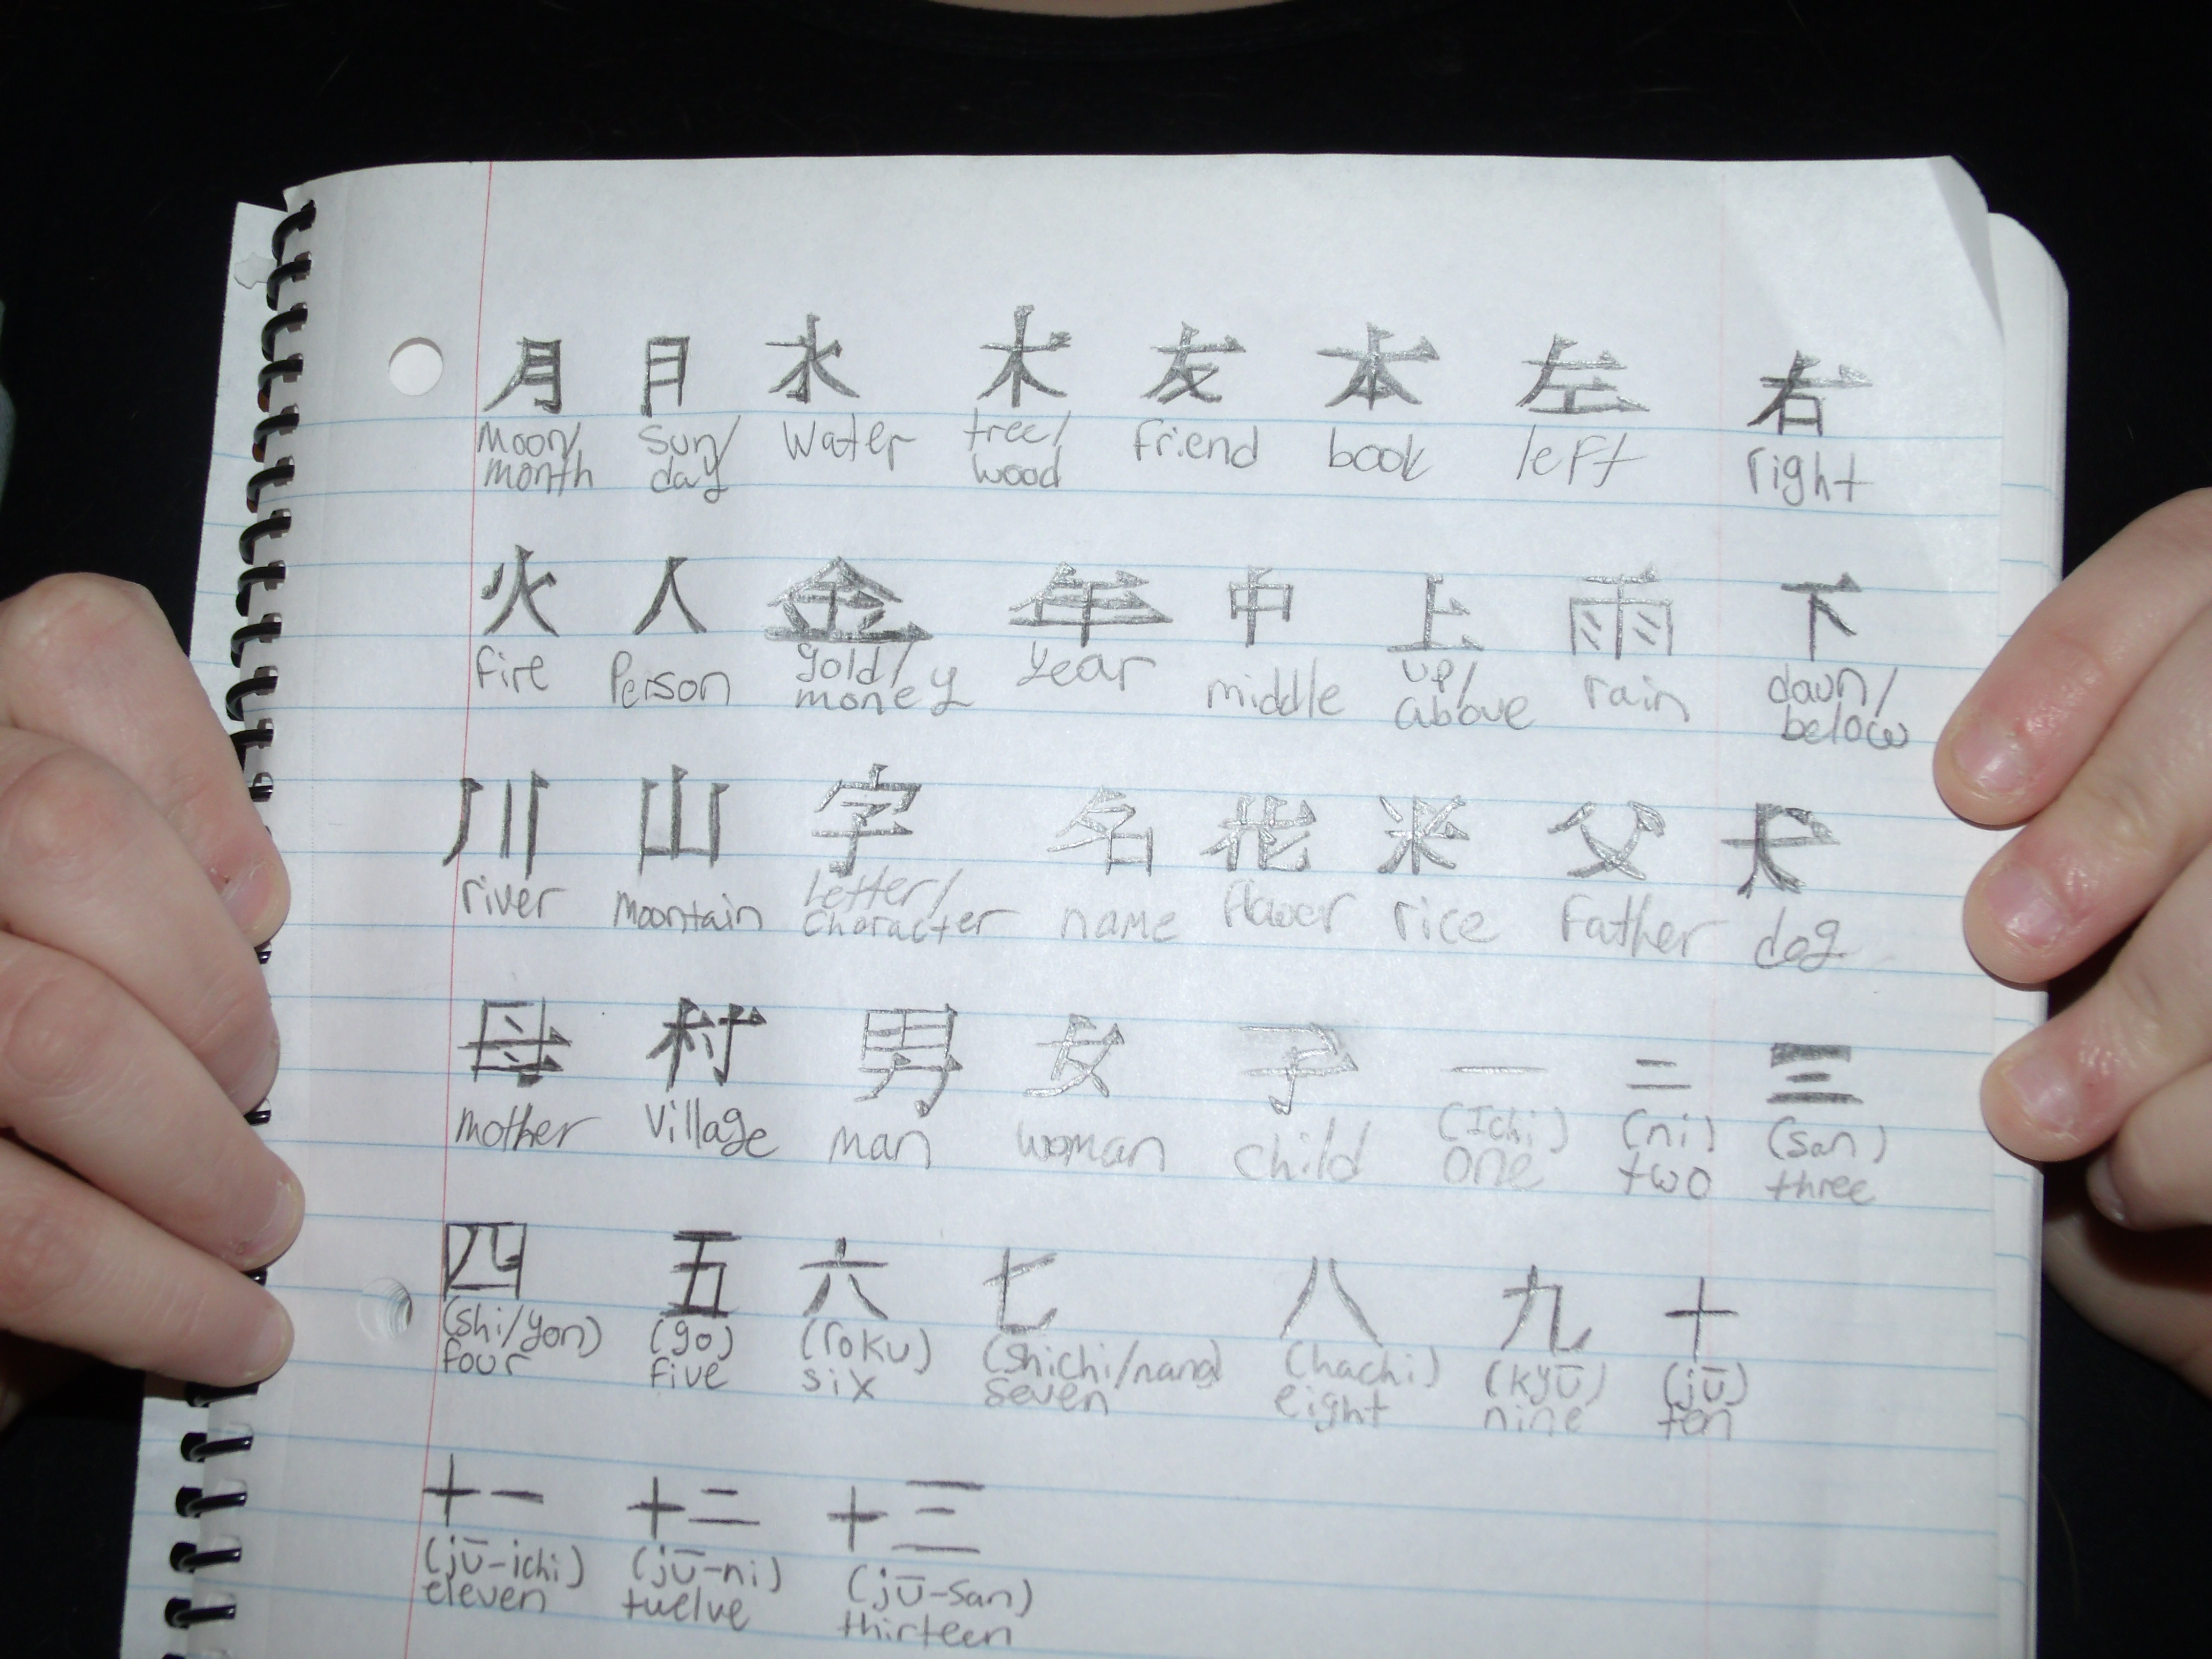 月 日 水 木 友 本 左 右
Moon/ Sun/ Water tree/ friend book left right
month day wood
火 人 金 年 中 上 雨 下
fire Person gold/ year middle up/ rain down/
money above below
川 山 字 名 花 米 父 犬
river Mountain Letter/ name flower rice Father dog
Character
母 村 男 女 子 一 二 三
mother Village man woman child (Ichi) (ni) (san)
one two three
四 五 六 七 八 九 十
(shi/yon) (go) (roku) (shichi/nana) (hachi) (kyū) (jū)
four five six seven eight nine ten
十一 十二 十三
(jū-ichi) (jū-ni) (jū-san)
eleven twelve thirteen